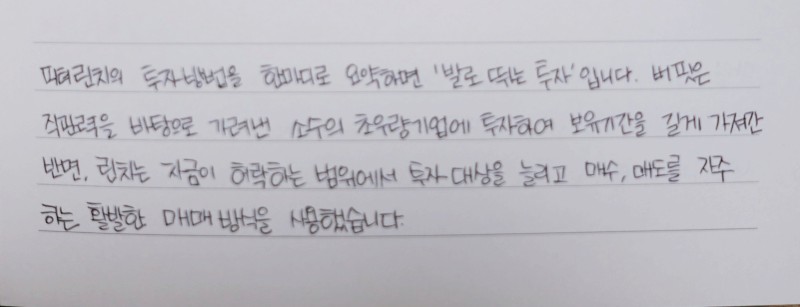 피터린치의 투자방법을 한마디로 요약하면 '발로 뛰는 투자'입니다. 버핏은
직관력을 바탕으로 가려낸 소수의 초우량기업에 투자하여 보유기간을 길게 가져간
반면, 린치는 자금이 허락하는 범위에서 투자 대상을 늘리고 매수, 매도를 자주
하는 활발한 매매 방식을 사용했습니다.